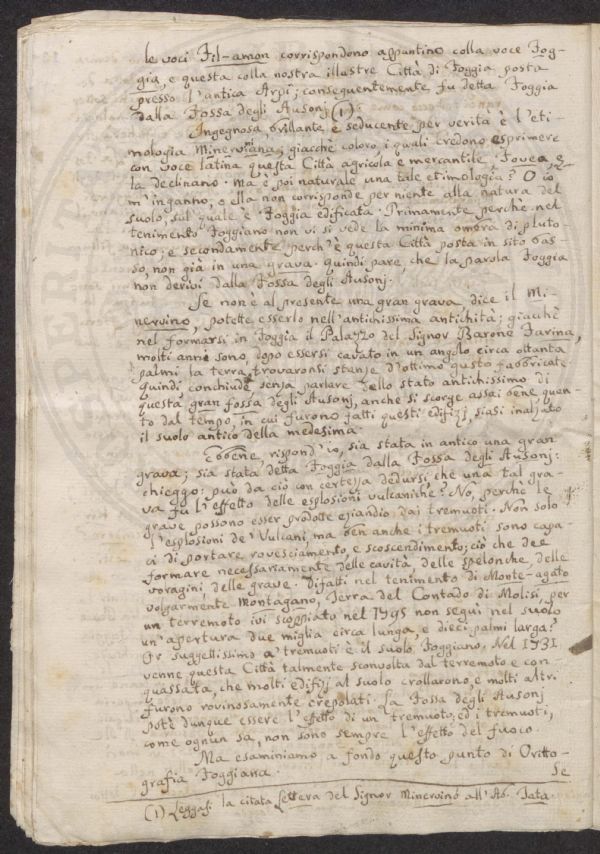 le voci Fil-amon corrispondono appuntino colla voce Fog-
gia, e questa colla nostra illustre Città di Foggia posta
presso l'antica Arpi; conseguentemente fu detta Foggia
dalla Fossa degli Ausonj (1).
Ingegnosa brillante, e seducente per verità è l'eti-
mologia Minerviniana; giacchè coloro, i quali credono esprimere
con voce latina questa Città agricola e mercantile, Fovea,
la declinano. Ma è poi naturale una tale etimologia? O io
m'inganno, o ella non corrisponde per niente alla natura del
suolo, sul quale è Foggia edificata. Primamente perchè nel
tenimento Foggiano non vi si vede la minima ombra di pluto-
nico; e secondamente perch'è questa Città posta in sito bas-
so, non già in una grava. Quindi pare, che la parola Foggia
non derivi dalla Fossa degli Ausonj.
Se non è al presente una gran grava dice il Mi-
nervino, potette esserlo nell'antichissima antichità; giacchè
nel formarsi in Foggia il Palazzo del Signor Barone Farina,
molti anni sono, dopo essersi cavato in un angolo circa ottanta
palmi la terra, trovaronsi stanze d'ottimo gusto fabbricate.
Quindi conchiude senza parlare dello stato antichissimo di
questa gran fossa degli Ausonj, anche si scorge assai bene quan-
to dal tempo, in cui furono fatti questi edifizj, siasi inalzato
il suolo antico della medesima.
Ebbene, rispond'io, sia stata in antico una gran
grava; sia stata detta Foggia dalla Fossa degli Ausonj:
chieggo: può da ciò con certezza dedursi che una tal gra-
va fu l'effetto delle esplosioni vulcaniche? No, perchè le
grave possono esser prodotte eziandio dai tremuoti. Non solo
l'esplosioni de' Vulcani, ma ben anche i tremuoti sono capa-
ci di portare rovesciamento, e scoscendimento; ciò che dee
formare necessariamente delle cavità, delle spelonche, delle
voragini delle grave. Difatti nel tenimento di Monte-agato
volgarmente Montagano, Terra del Contado di Molisi, per
un terremoto ivi scoppiato nel 1795 non seguì nel suolo
un'apertura due miglia circa lunga, e dieci palmi larga?
Or suggettissimo a' tremuoti è il suolo Foggiano. Nel 1731
venne questa Città talmente sconvolta dal terremoto e con-
quassata, che molti edifizj al suolo crollarono, e molti altri
furono rovinosamente crepolati. La Fossa degli Ausonj
potè dunque essere l'effetto di un tremuoto, ed i tremuoti,
come ognun sa, non sono sempre l'effetto del fuoco.
Ma esaminiamo a fondo questo punto di Oritto-
grafia Foggiana.
Se
(1) Leggasi la citata Lettera del Signor Minervino all'Ab. Tata.